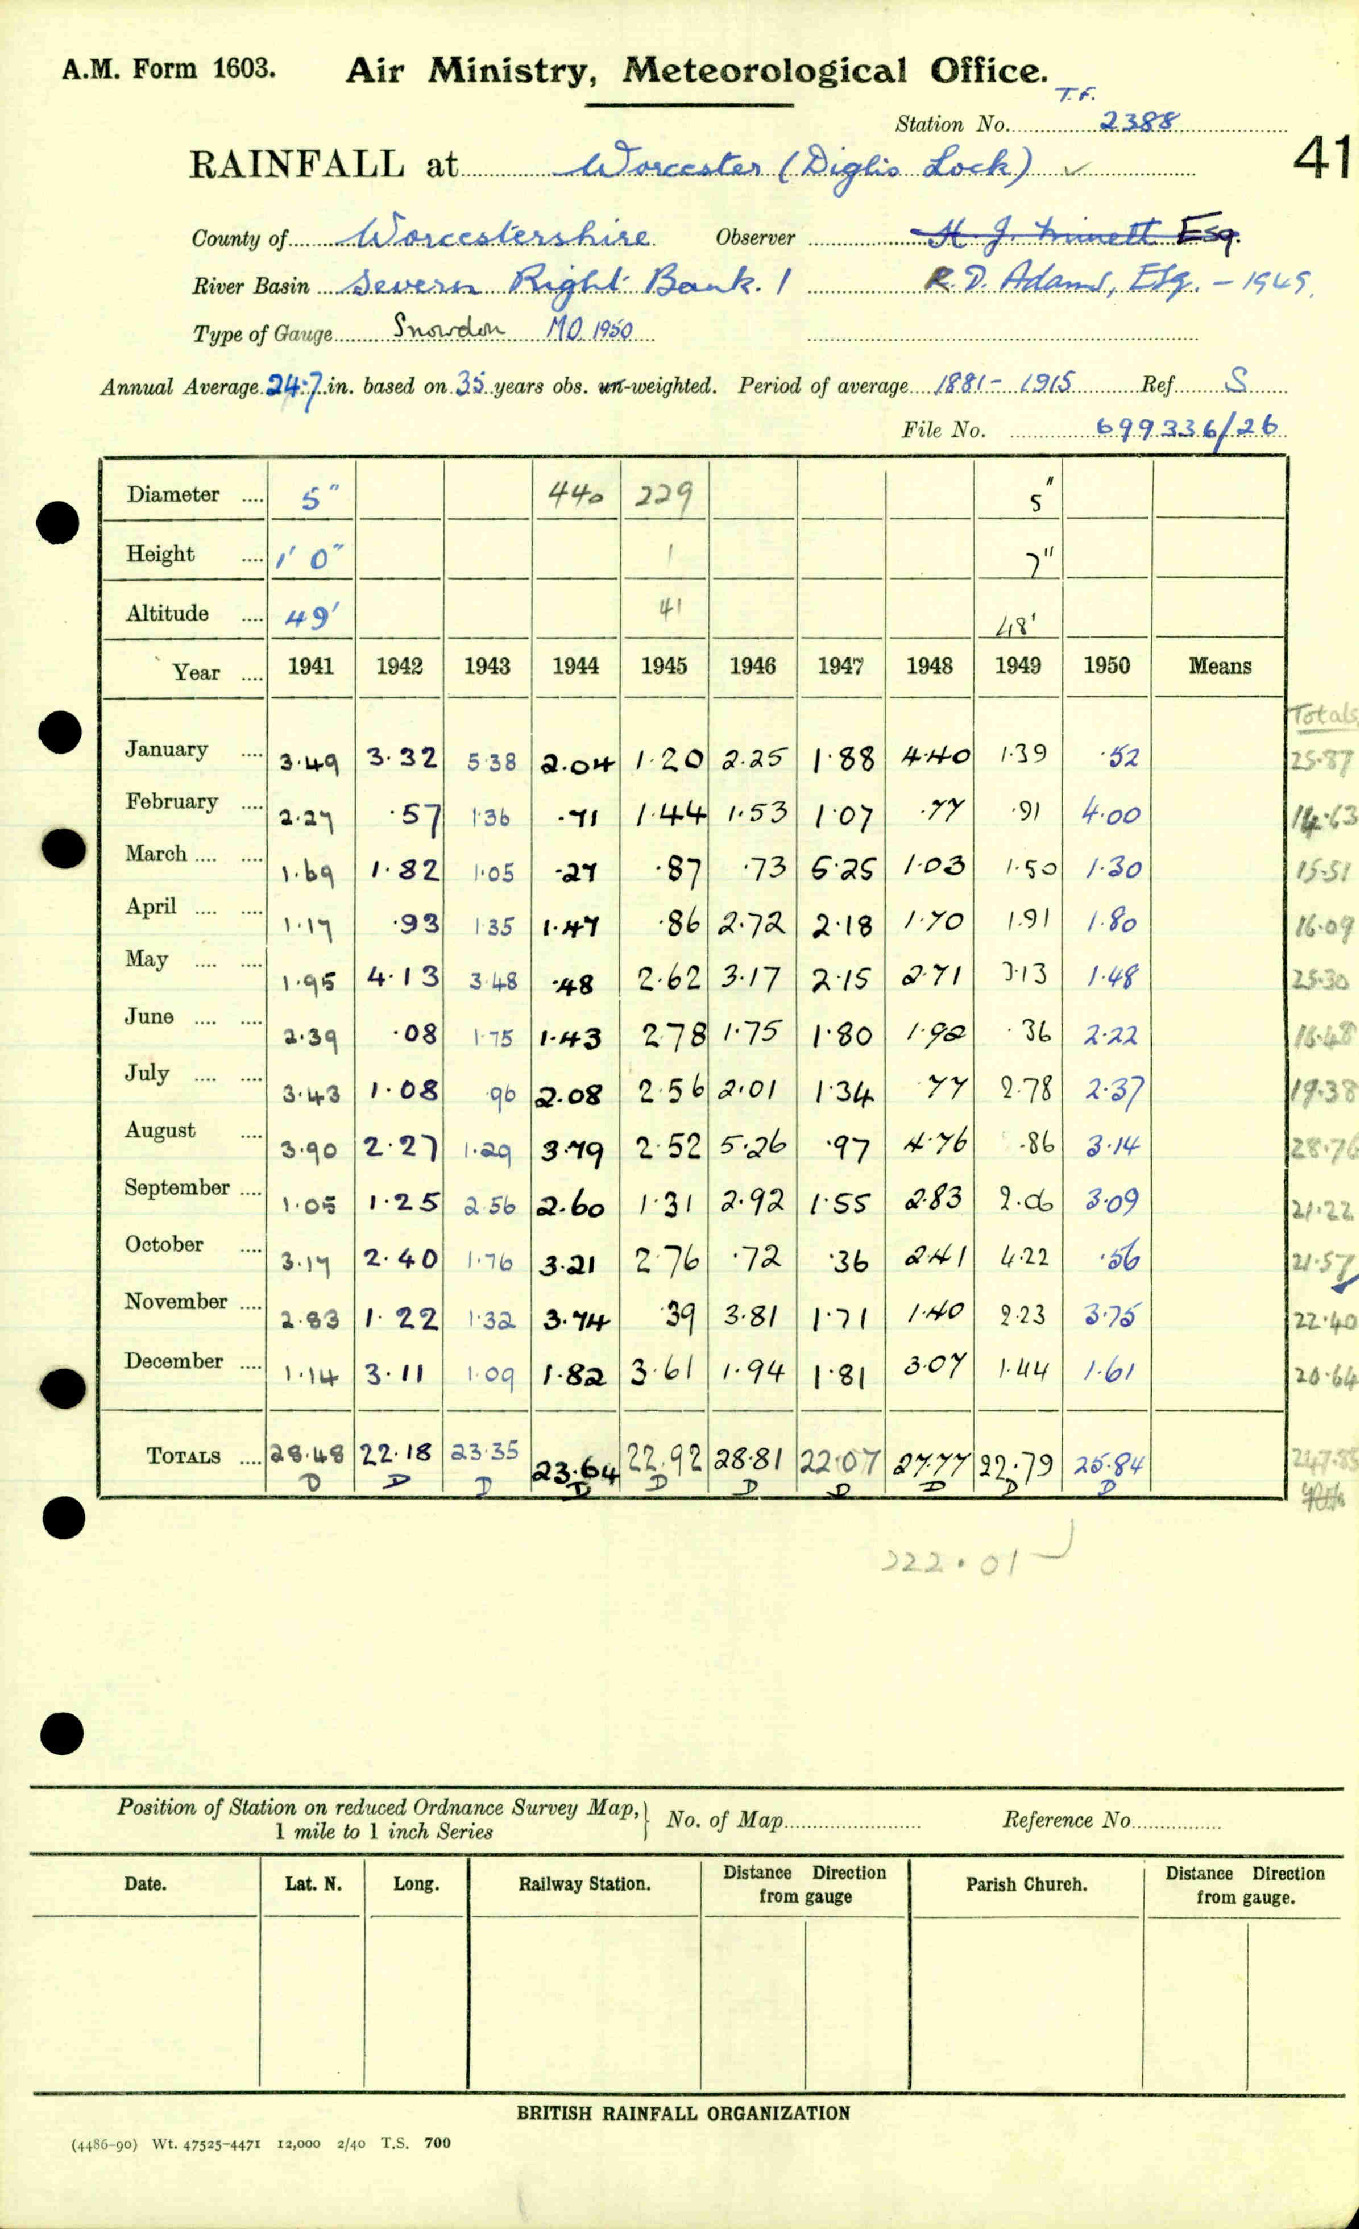 A.M. Form 1603. Air Ministry, Meteorological Office.
T.F.
Station No. 2388
RAINFALL at Worcester (Diglis Lock) ✓ 41
County of Worcestershire Observer Esq.
River Basin Severn Right Bank. 1 R. D. Adams, Esq. - 1949.
Type of Gauge Snowdon M.O. 1950
Annual Average 24.7 in. based on 35 years obs. un-weighted. Period of average 1881 - 1915 Ref. S
File No. 699336/26
Diameter .... 5" 440 229 5"
Height .... 1' 0" 1 7"
Altitude .... 49' 41 48'
Year .... 1941 1942 1943 1944 1945 1946 1947 1948 1949 1950 Means
Totals
January .... 3.49 3.32 5.38 2.04 1.20 2.25 1.88 4.40 1.39 .52 25.87
February .... 2.27 .57 1.36 .71 1.44 1.53 1.07 .77 .91 4.00 14.63
March .... .... 1.69 1.82 1.05 .27 .87 .73 5.25 1.03 1.50 1.30 15.51
April .... .... 1.17 .93 1.35 1.47 .86 2.72 2.18 1.70 1.91 1.80 16.09
May .... .... 1.95 4.13 3.48 .48 2.62 3.17 2.15 2.71 3.13 1.48 25.30
June .... .... 2.39 .08 1.75 1.43 2.78 1.75 1.80 1.92 .36 2.22 16.48
July .... .... 3.43 1.08 .96 2.08 2.56 2.01 1.34 .77 2.78 2.37 19.38
August .... 3.90 2.27 1.29 3.79 2.52 5.26 .97 4.76 .86 3.14 28.76
September .... 1.05 1.25 2.56 2.60 1.31 2.92 1.55 2.83 2.06 3.09 21.22
October .... 3.17 2.40 1.76 3.21 2.76 .72 .36 2.41 4.22 .56 21.57
November .... 2.83 1.22 1.32 3.74 .39 3.81 1.71 1.40 2.23 3.75 22.40
December .... 1.14 3.11 1.09 1.82 3.61 1.94 1.81 3.07 1.44 1.61 20.64
TOTALS .... 28.48 22.18 23.35 23.64 22.92 28.81 22.07 27.77 22.79 25.84 247.85
D D D D D D D D D D
222.01
Position of Station on reduced Ordnance Survey Map, } No. of Map Reference No.
1 mile to 1 inch Series
Date. Lat. N. Long. Railway Station. Distance Direction from gauge Parish Church. Distance Direction from gauge.
BRITISH RAINFALL ORGANIZATION
(4486-90) Wt. 47525-4471 12,000 2/40 T.S. 700